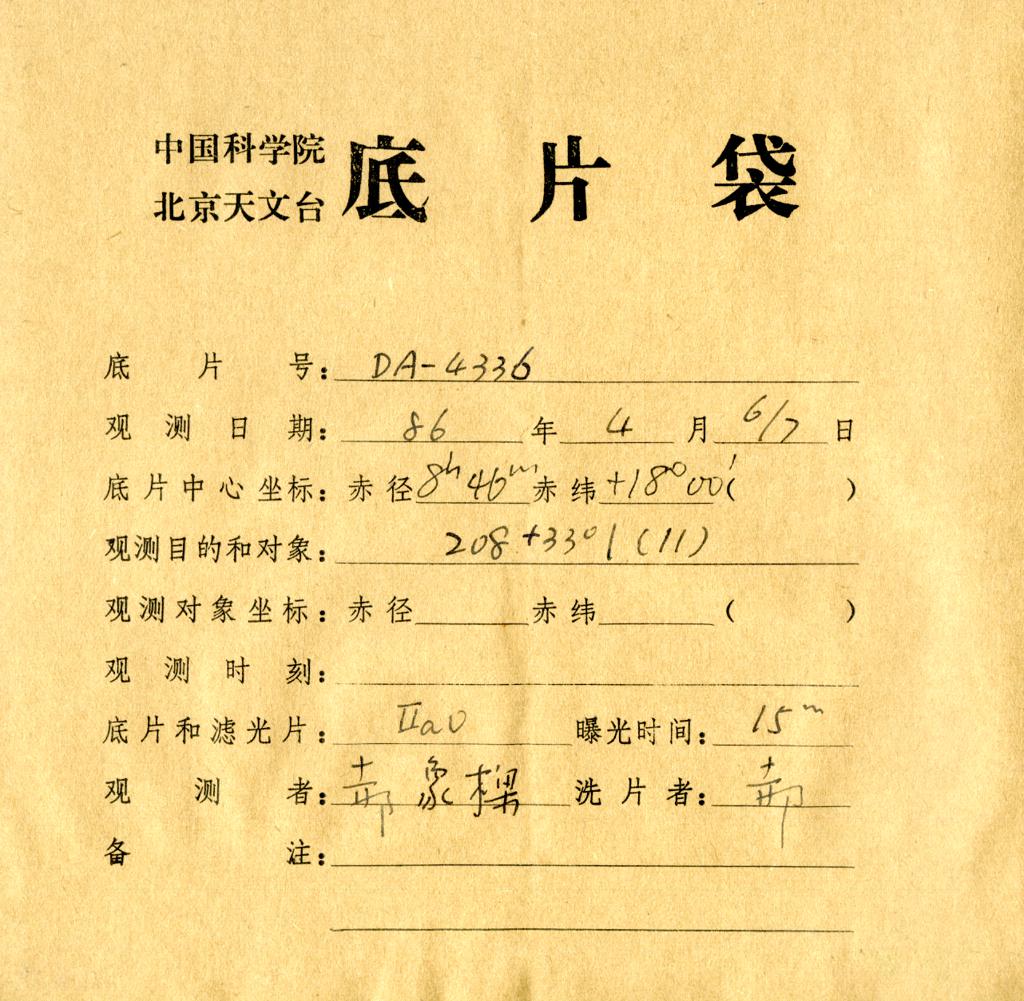 中国科学院
北京天文台
底片袋
底片号：DA-4336
观测日期：86年4月6/7日
底片中心坐标：赤径8h46m赤纬+18°00′( )
观测目的和对象：208+3301(11)
观测对象坐标：赤径 赤纬 ( )
观测时刻：
底片和滤光片：IIaO 曝光时间：15m
观测者：郝象樑 洗片者：郝
备注：